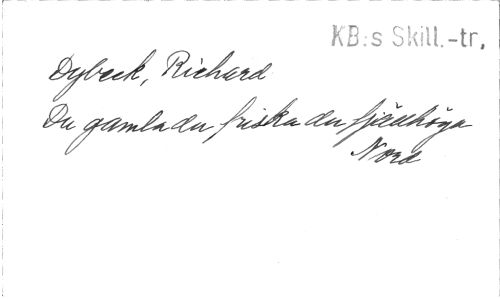 KB:s Skill.-tr,
Dybeck, Richard
Du gamla du friska du fjällhöga
Nord